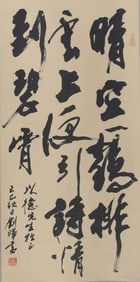 晴空一鶴排
雲上便引詩情
到碧霄
以德先生雅正
巳秋月劉書